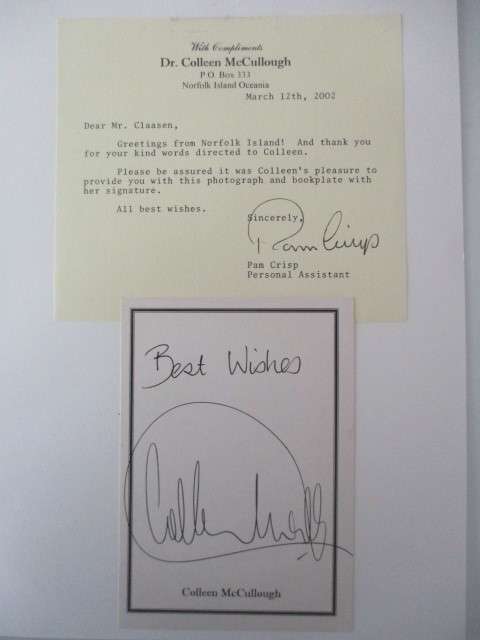 With Compliments
Dr. Colleen McCullough
P O. Box 333
Norfolk Island Oceania
March 12th, 2002
Dear Mr. Claasen,
Greetings from Norfolk Island! And thank you
for your kind words directed to Colleen.
Please be assured it was Colleen's pleasure to
provide you with this photograph and bookplate with
her signature.
All best wishes.
Sincerely,
Pam Crisp
Pam Crisp
Personal Assistant
Best Wishes
Colleen McCullough
Colleen McCullough